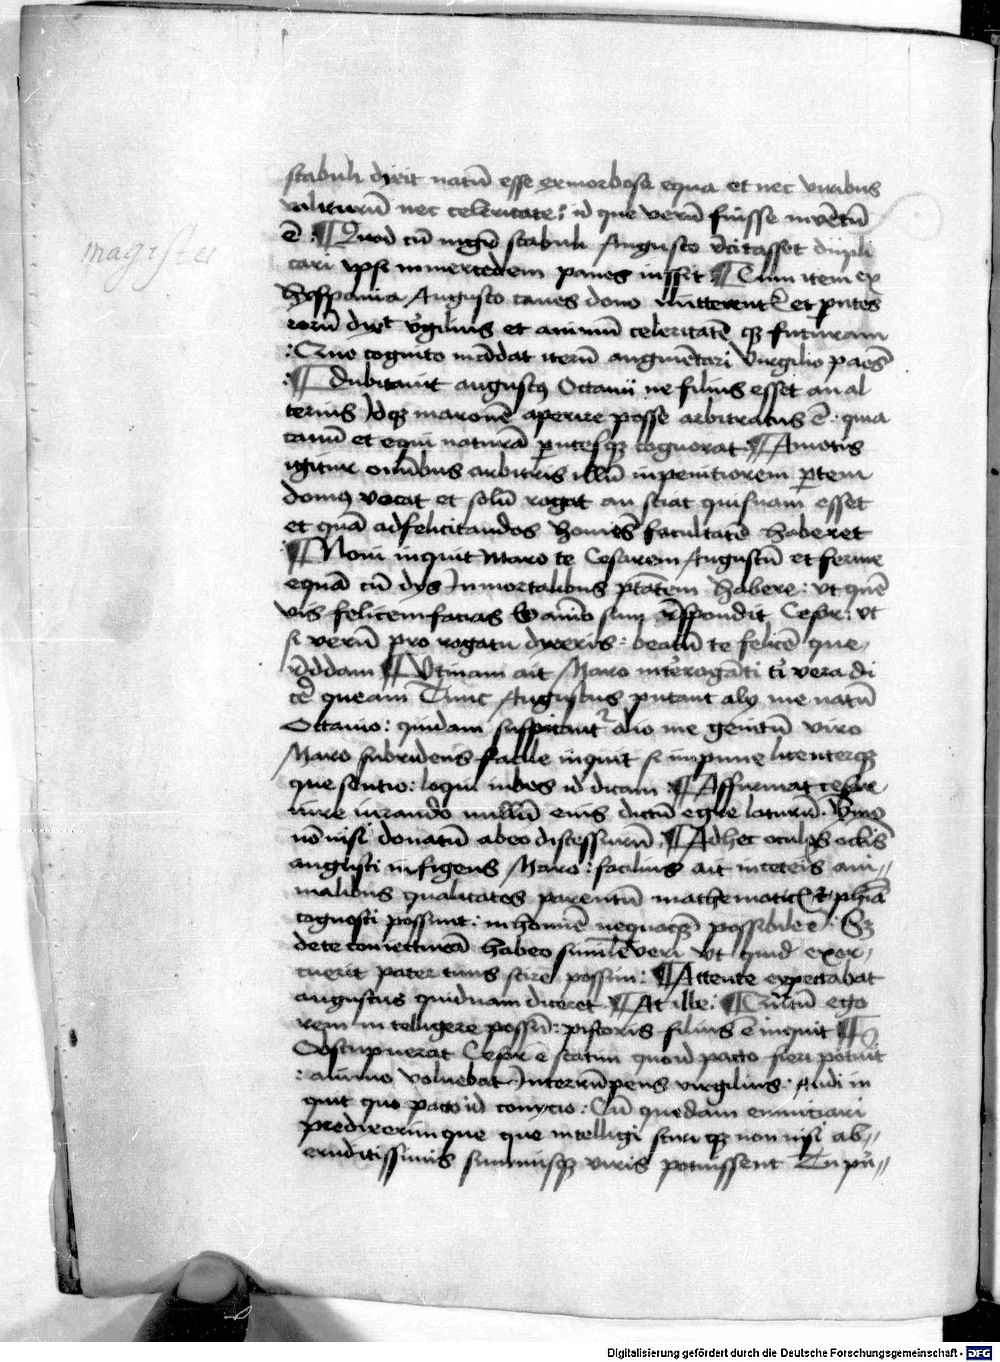 magister
stabuli dixit natū esse ex morbosa equa et nec viribus
valiturū nec celeritate: id que verū fuisse inventū
ē: ¶ Quod cū mgr̄ stabuli Augusto rēcitasset dupli
cari ipsi in mercedem panes iussit ¶ Cum item ex
Hyspania Augusto canes dono mitterentᷣ et pn̄tes
eorū dixᵗ v̓gilius et animū celeritatē qz futuram
: Quo cognito mādat iterū augmētari Virgilio paēs
: ¶ Dubitavit augustꝰ Octavii ne filius esset an al
terius Idqz maronē aperire posse arbitratus ē qui a
canū et equi naturā p̄ntesqz cognorat ¶ Amotis
igitur omībus arbitris illū in penitiorem p̄tem
domꝰ vocat et solū rogat an sciat quisnam esset
et quā ad felicitandos homies facultatē haberet
¶ Novi inquit Maro te Cesarem Augustū et ferme
equā cū dys Inmortalibus ptātem habere: vt quē
vis felicem facias animo sum rn̄spondit Cesar: vt
si verū pro rogatu dixeris: beatū te felicē que
rēddam ¶ Vtinam ait Maro interrogāti tͥ vera di
cer̄ queam Tunc Augustus putant aly me natū
Octavio: quidam suspicantᷣ alio me genitū viro
Maro subridens facile inquit si impune licenterqz
que sentio: loqui iubes id dicam ¶ Affirmat cesar
iure iurando nullū eius dictū egre laturū.
nō nisi donatū ab eo discessurū: ¶ Ad hec oculos oclis
augusti infigens Maro: facilius ait in ceteris ani
malibus qualitates parentū mathematicͥ et phīa
cognosci possunt: in homīe nequaqz possibile ē: Sz
de te coniecturā habeo similē veri vt quid exer
cuerit pater tuus scire possim: ¶ Attente expectabat
augustus quidnam diceret ¶ At ille: ¶ Qn̄tū ego
rem intelligere possū: pistoris filius ē inquit ¶
Obstupuerat Cesar ē statim quo id pacto fieri potuit
: animo volvebat Interrūpens virgilius: Audi in
quit quo pacto id conycio: Cū quedam enuntiari
predixerimque que intelligi sciri qz non nisi ab
eruditissimis summisqz viris potuissent Tu pn̄
Digitalisierung gefördert durch die Deutsche Forschungsgemeinschaft - DFG